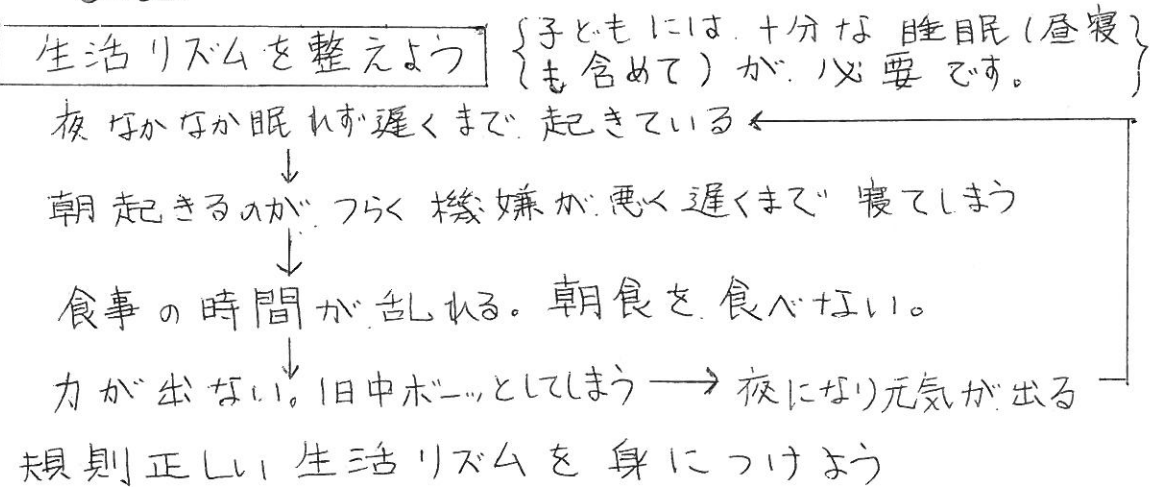 生活リズムを整えよう
子どもには十分な睡眠(昼寝
も含めて)が必要です。
夜なかなか眠れず遅くまで起きている
朝起きるのがつらく機嫌が悪く遅くまで寝てしまう
食事の時間が乱れる。朝食を食べない。
力が出ない。1日中ボーッとしてしまう→夜になり元気が出る
規則正しい生活リズムを身につけよう